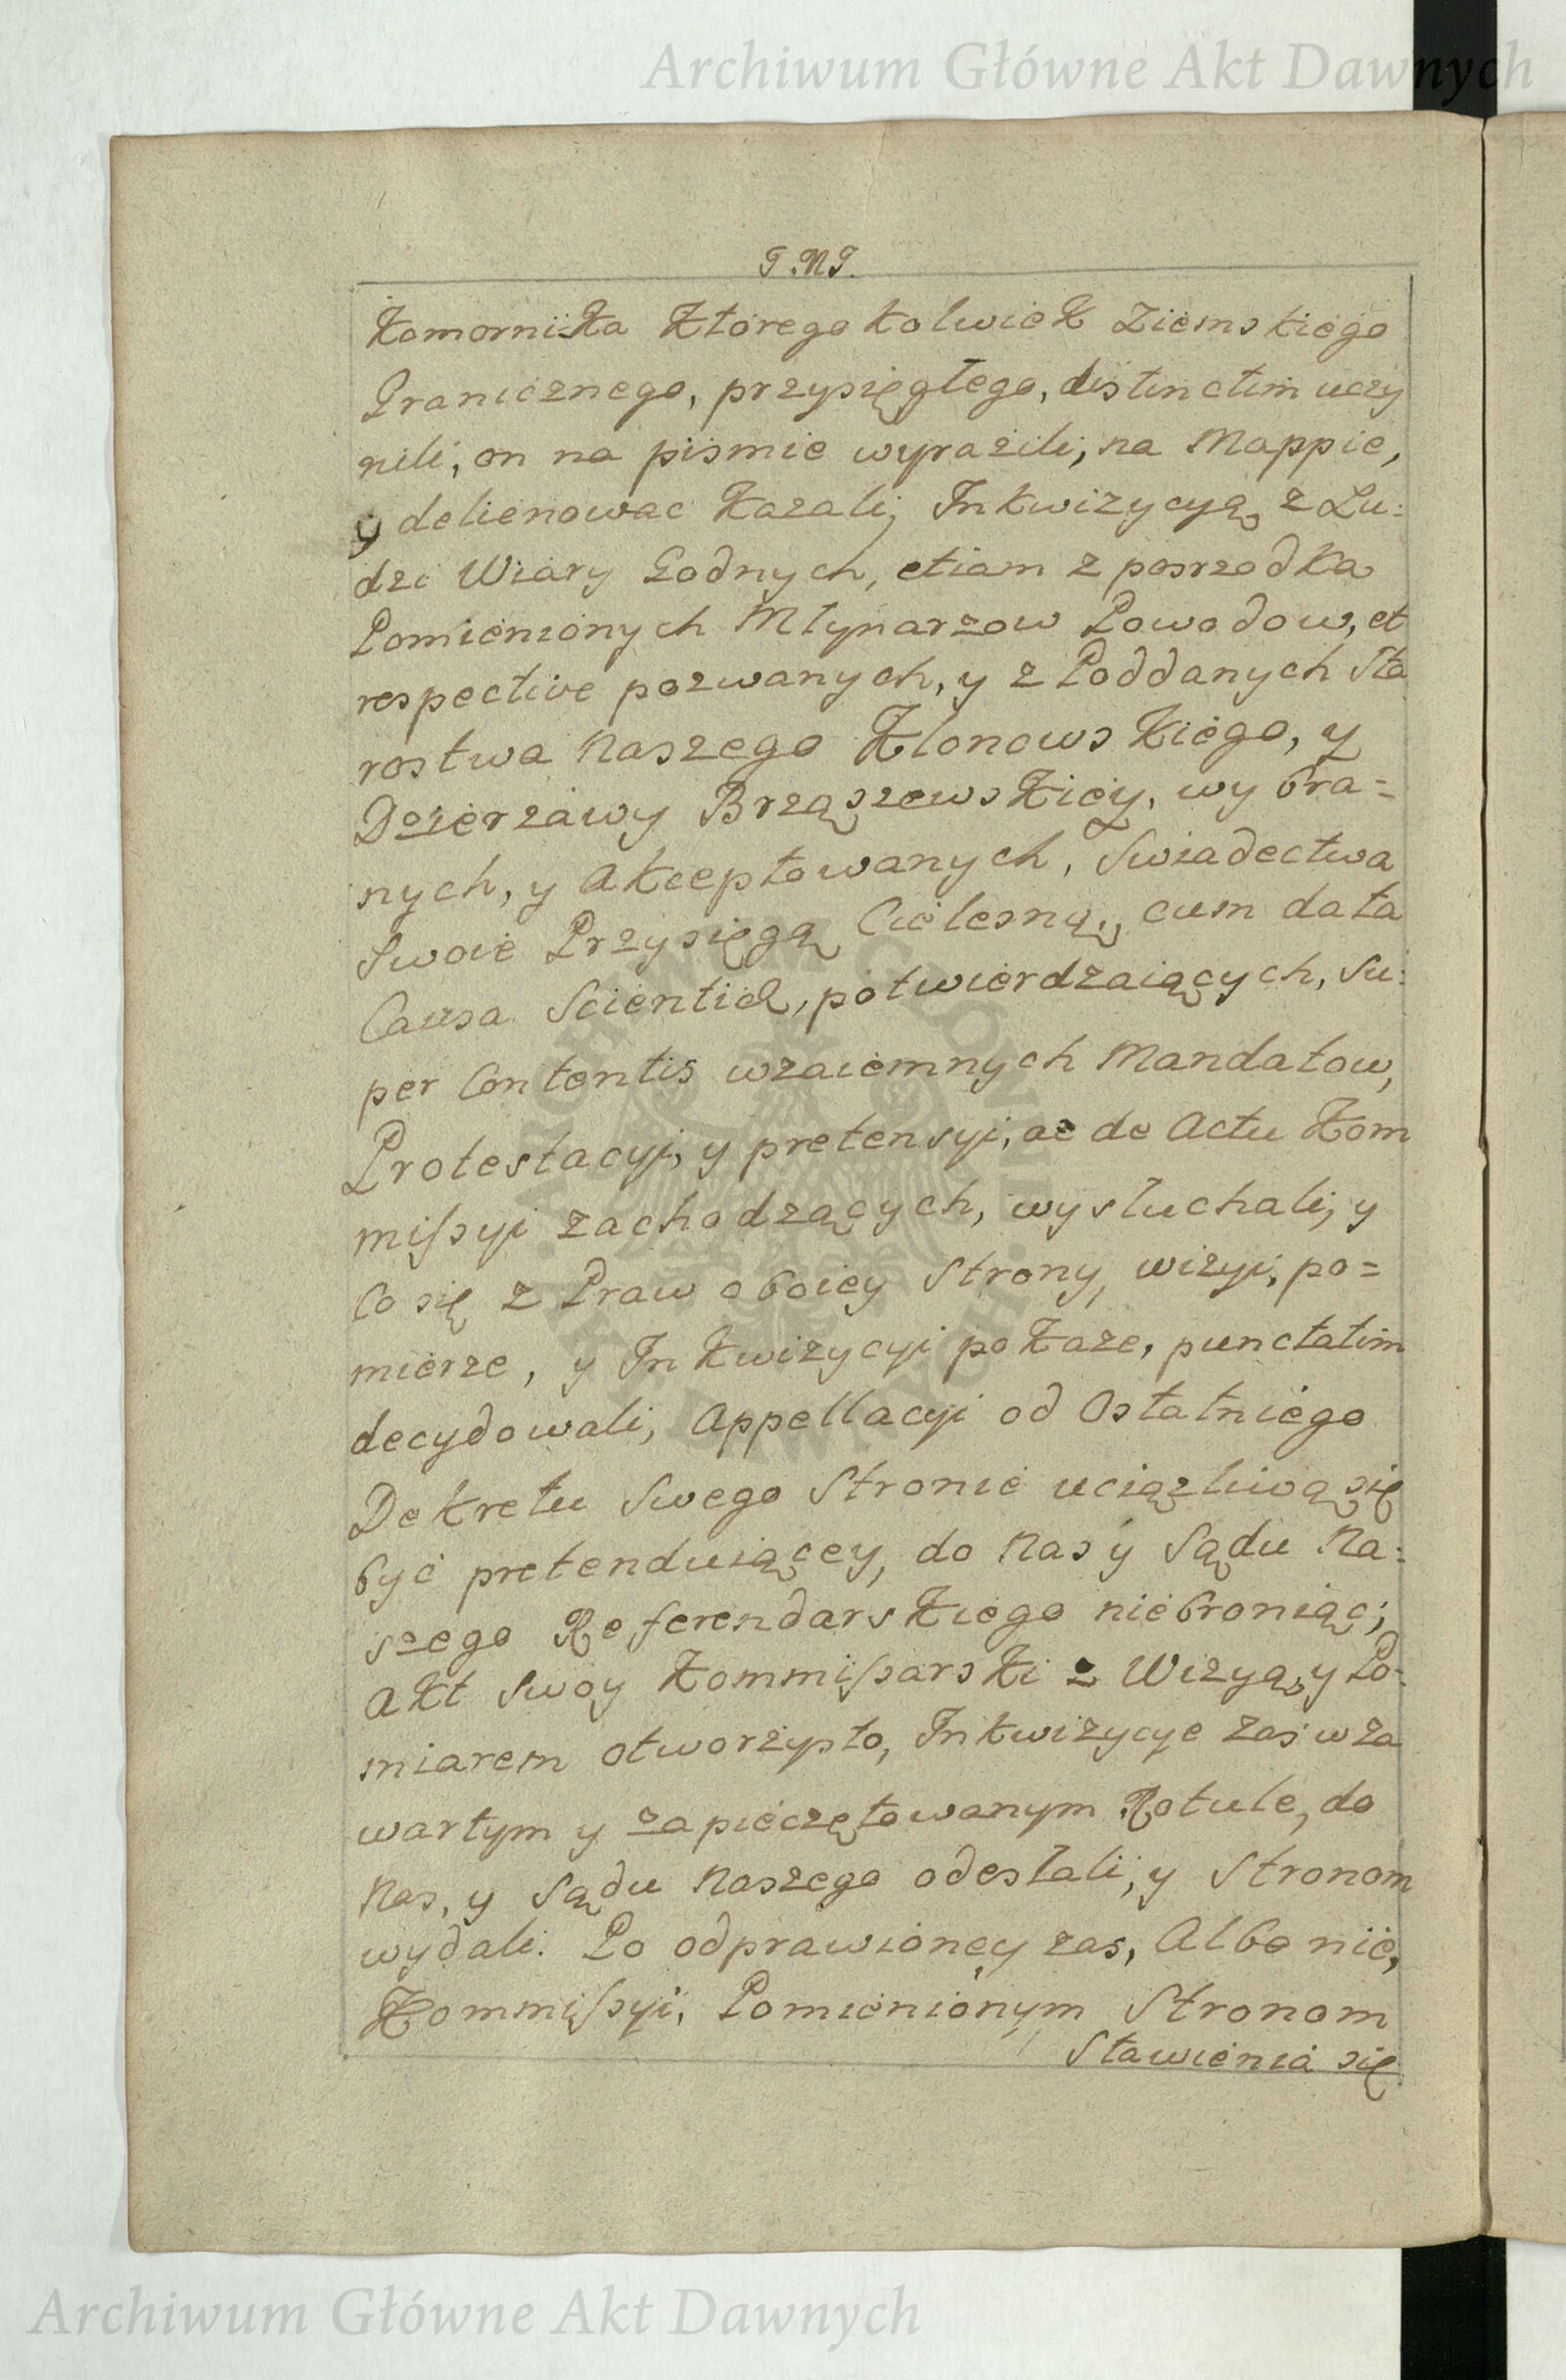 Archiwum Główne Akt Dawnych
J.N.J.
Komornika Ktorego kolwiek Ziemskiego
Granicznego, przysięgłego, distinctim uczy
nili, on na pismie wyrazili, na Mappie,
y delienowac Kazali, Inkwizycyą z Lu:
dzi Wiary Godnych, etiam z posrzodka
Pomienionych Młynarzow Powodow, et
respective pozwanych, y z Poddanych Sta
rostwa Naszego Klonowskiego, y
Dozierzawy Brząszewskiey, wybra=
nych, y Akceptowanych, Swiadectwa
Swoie Przysięgą Cielesną, cum data
Causa Scientiæ, potwierdzaiących, Su:
per Contentis wzaiemnych Mandatow,
Protestacyi, y pretensyi, ac de Actu Kom
mißyi zachodzących, wysłuchali, y
Co się z Praw oboiey Strony, wizyi, po=
mierze, y Inkwizycyi pokaze, punctatim
decydowali, Appellacyi od Ostatniego
Dekretu Swego Stronie uciązliwą się
być pretenduiącey, do Nas y Sądu Na:
szego Referendarskiego niebroniąc;
Akt Swoy Kommißarski z Wizyą, y Po=
miarem otworzysto, Inkwizycye zas w za
wartym y zapieczętowanym Rotule, do
Nas, y Sądu Naszego odesłali, y Stronom
wydali. Po odprawioney zas, Albo nie,
Kommißyi, Pomienionym Stronom
Stawienia się
Archiwum Główne Akt Dawnych